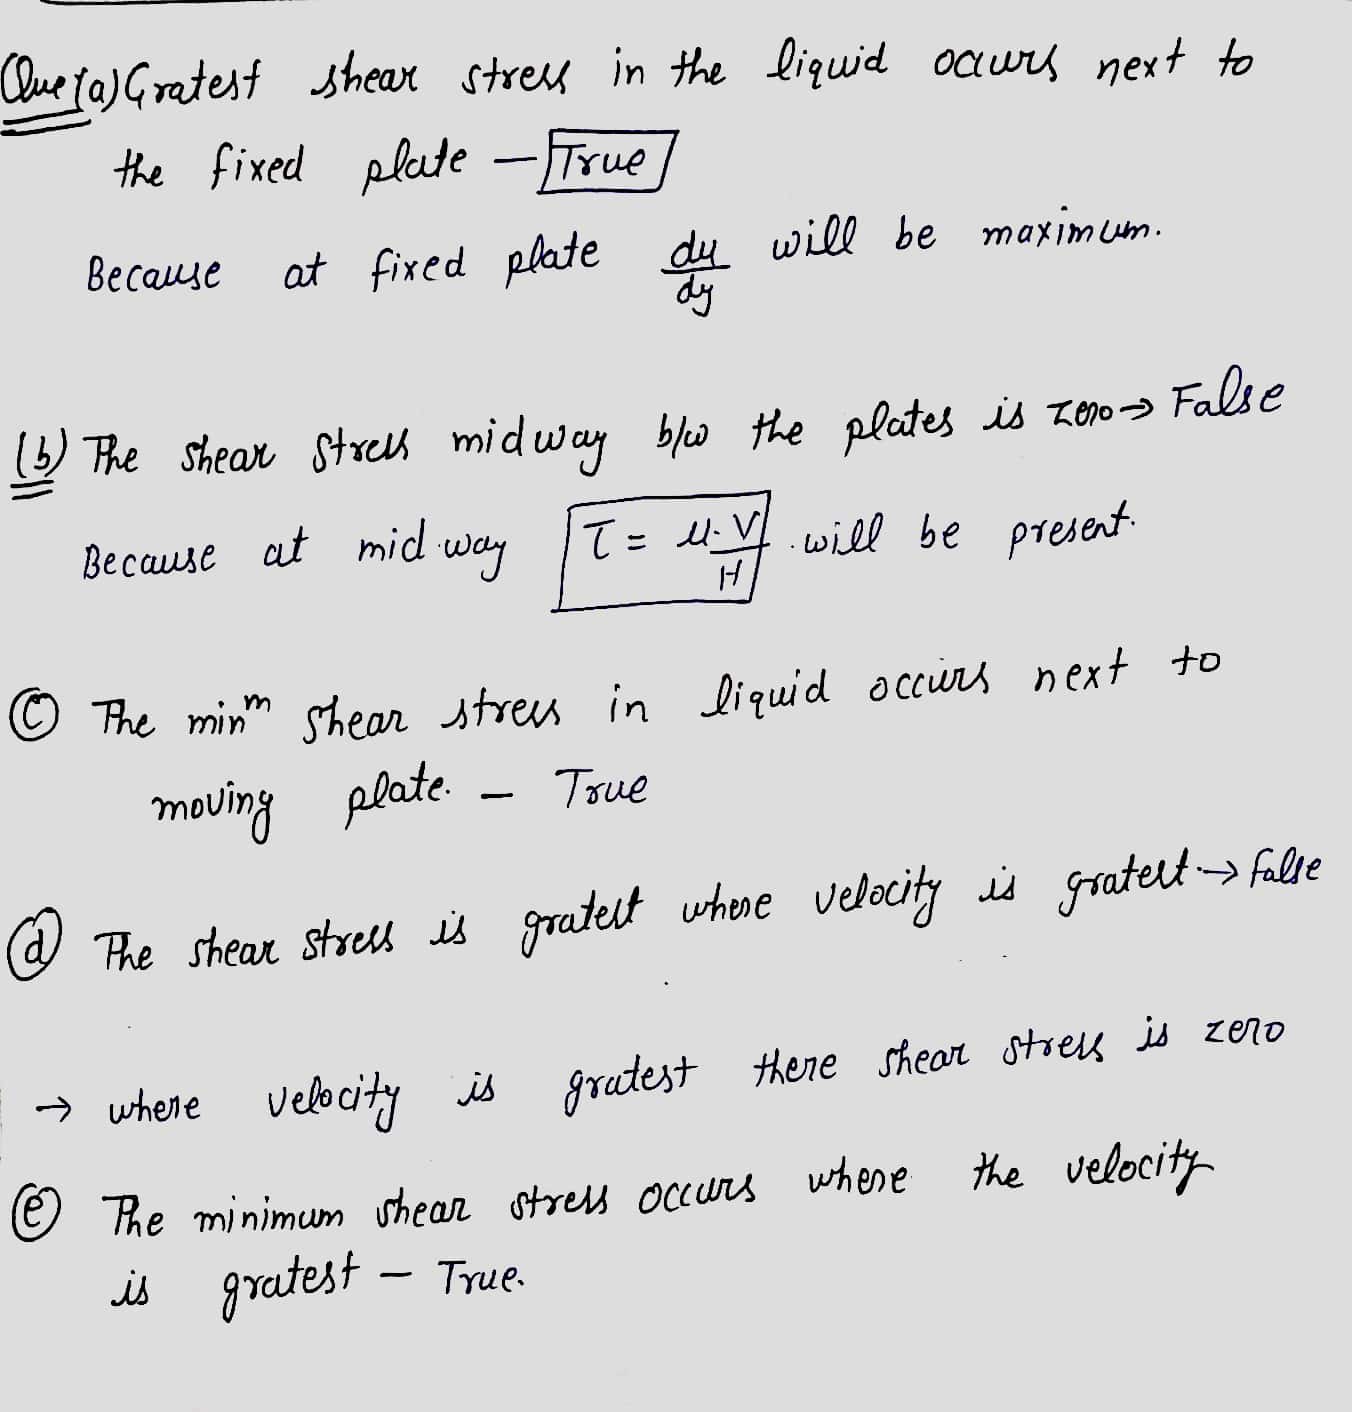 Que (a) Gratest shear stress in the liquid occurs next to
the fixed plate - True
Because at fixed plate du/dy will be maximum.
(b) The shear stress midway b/w the plates is zero → False
Because at mid way τ = μ.V/H will be present.
(c) The minm shear stress in liquid occurs next to
moving plate. - True
(d) The shear stress is gratest where velocity is gratest → false
→ where velocity is gratest there shear stress is zero
(e) The minimum shear stress occurs where the velocity
is gratest - True.